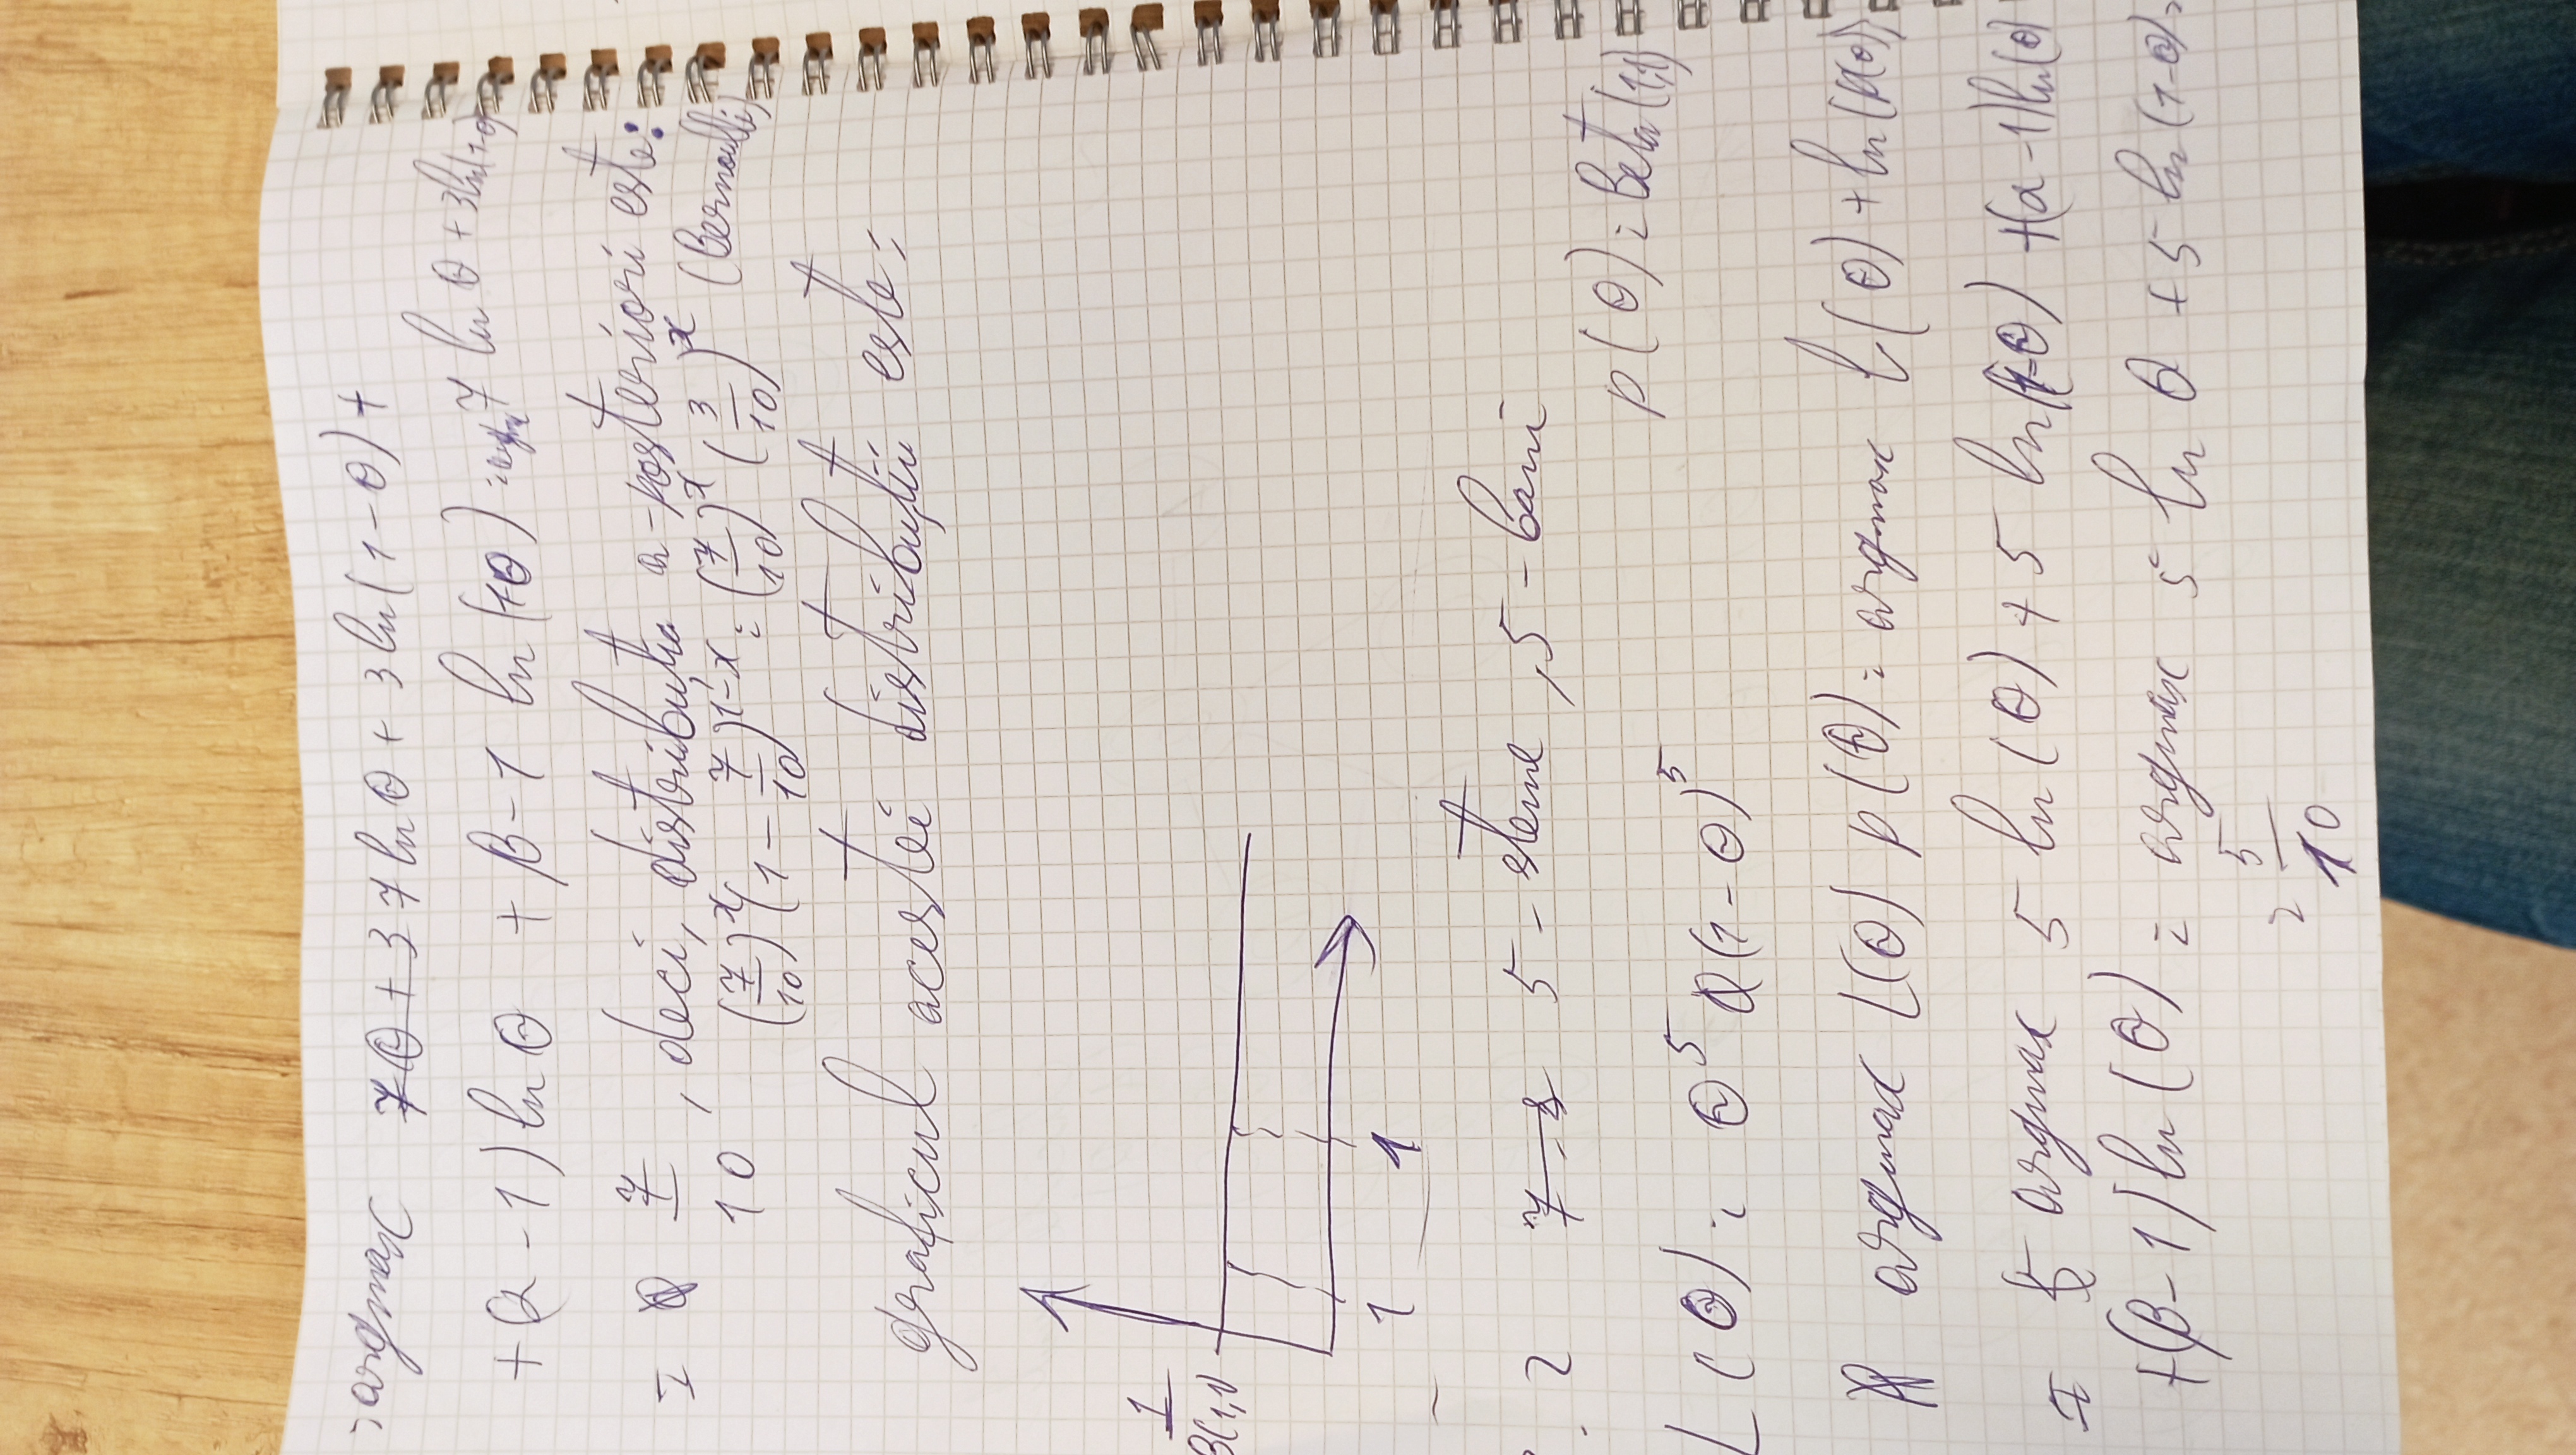 = argmax 7 ln θ + 3 ln(1-θ) +
+ (α - 1) ln θ + β - 1 ln(1-θ) = argm 7 ln θ + 3 ln(1-θ)
= 7/10 , deci, distribuția a-posteriori este:
(7/10)^x (1 - 7/10)^(1-x) = (7/10)^x (3/10)^x (Bernoulli)
graficul acestei distribuții este:
1/B(1,1)
1 1
2 5 - steme , 5 - bani
p(θ) = Beta(1,1)
L(θ) = θ^5 (1-θ)^5
argmax L(θ) p(θ) = argmax l(θ) + ln(p(θ))
= argmax 5 ln(θ) + 5 ln(1-θ) + (α - 1) ln(θ)
+ (β - 1) ln(θ) = argmax 5 ln θ + 5 ln(1-θ) =
= 5/10